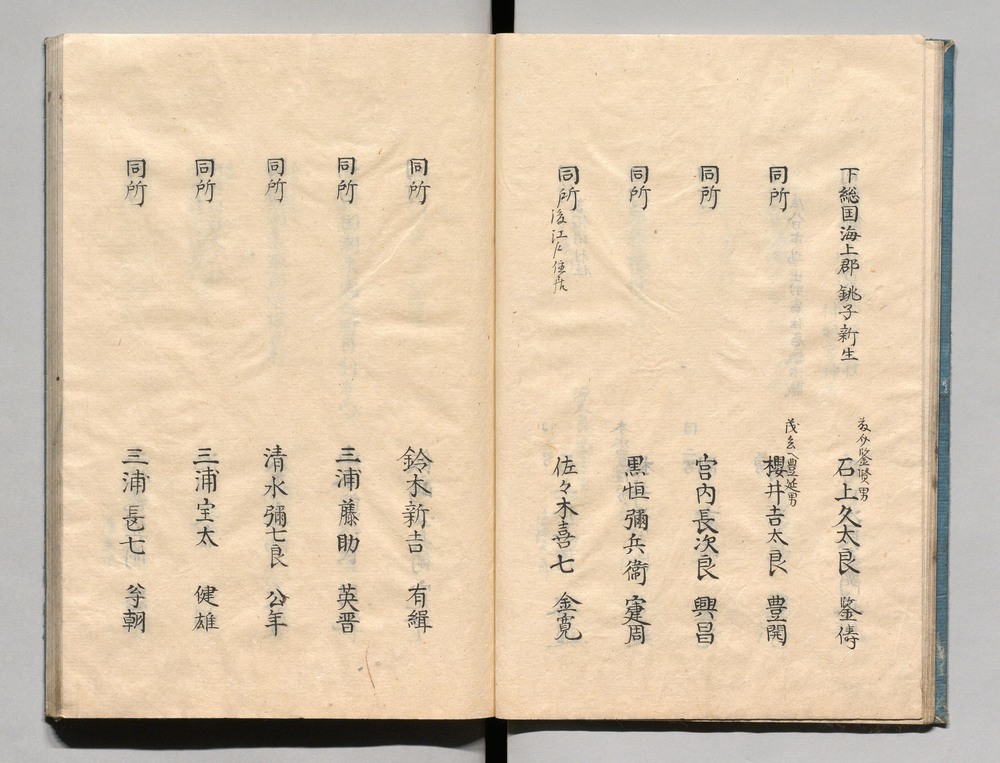 下総国海上郡銚子新生 石上久太良 鑒儔
鑒賢男
同所 櫻井吉太良 豊開
豊延男
同所 宮内長次良 興昌
同所 黒恒彌兵衞 寔周
同所後江戸住居 佐々木喜七 金寛
同所 鈴木新吉 有緝
同所 三浦藤助 英晋
同所 清水彌七良 公年
同所 三浦宝太 健雄
同所 三浦長七